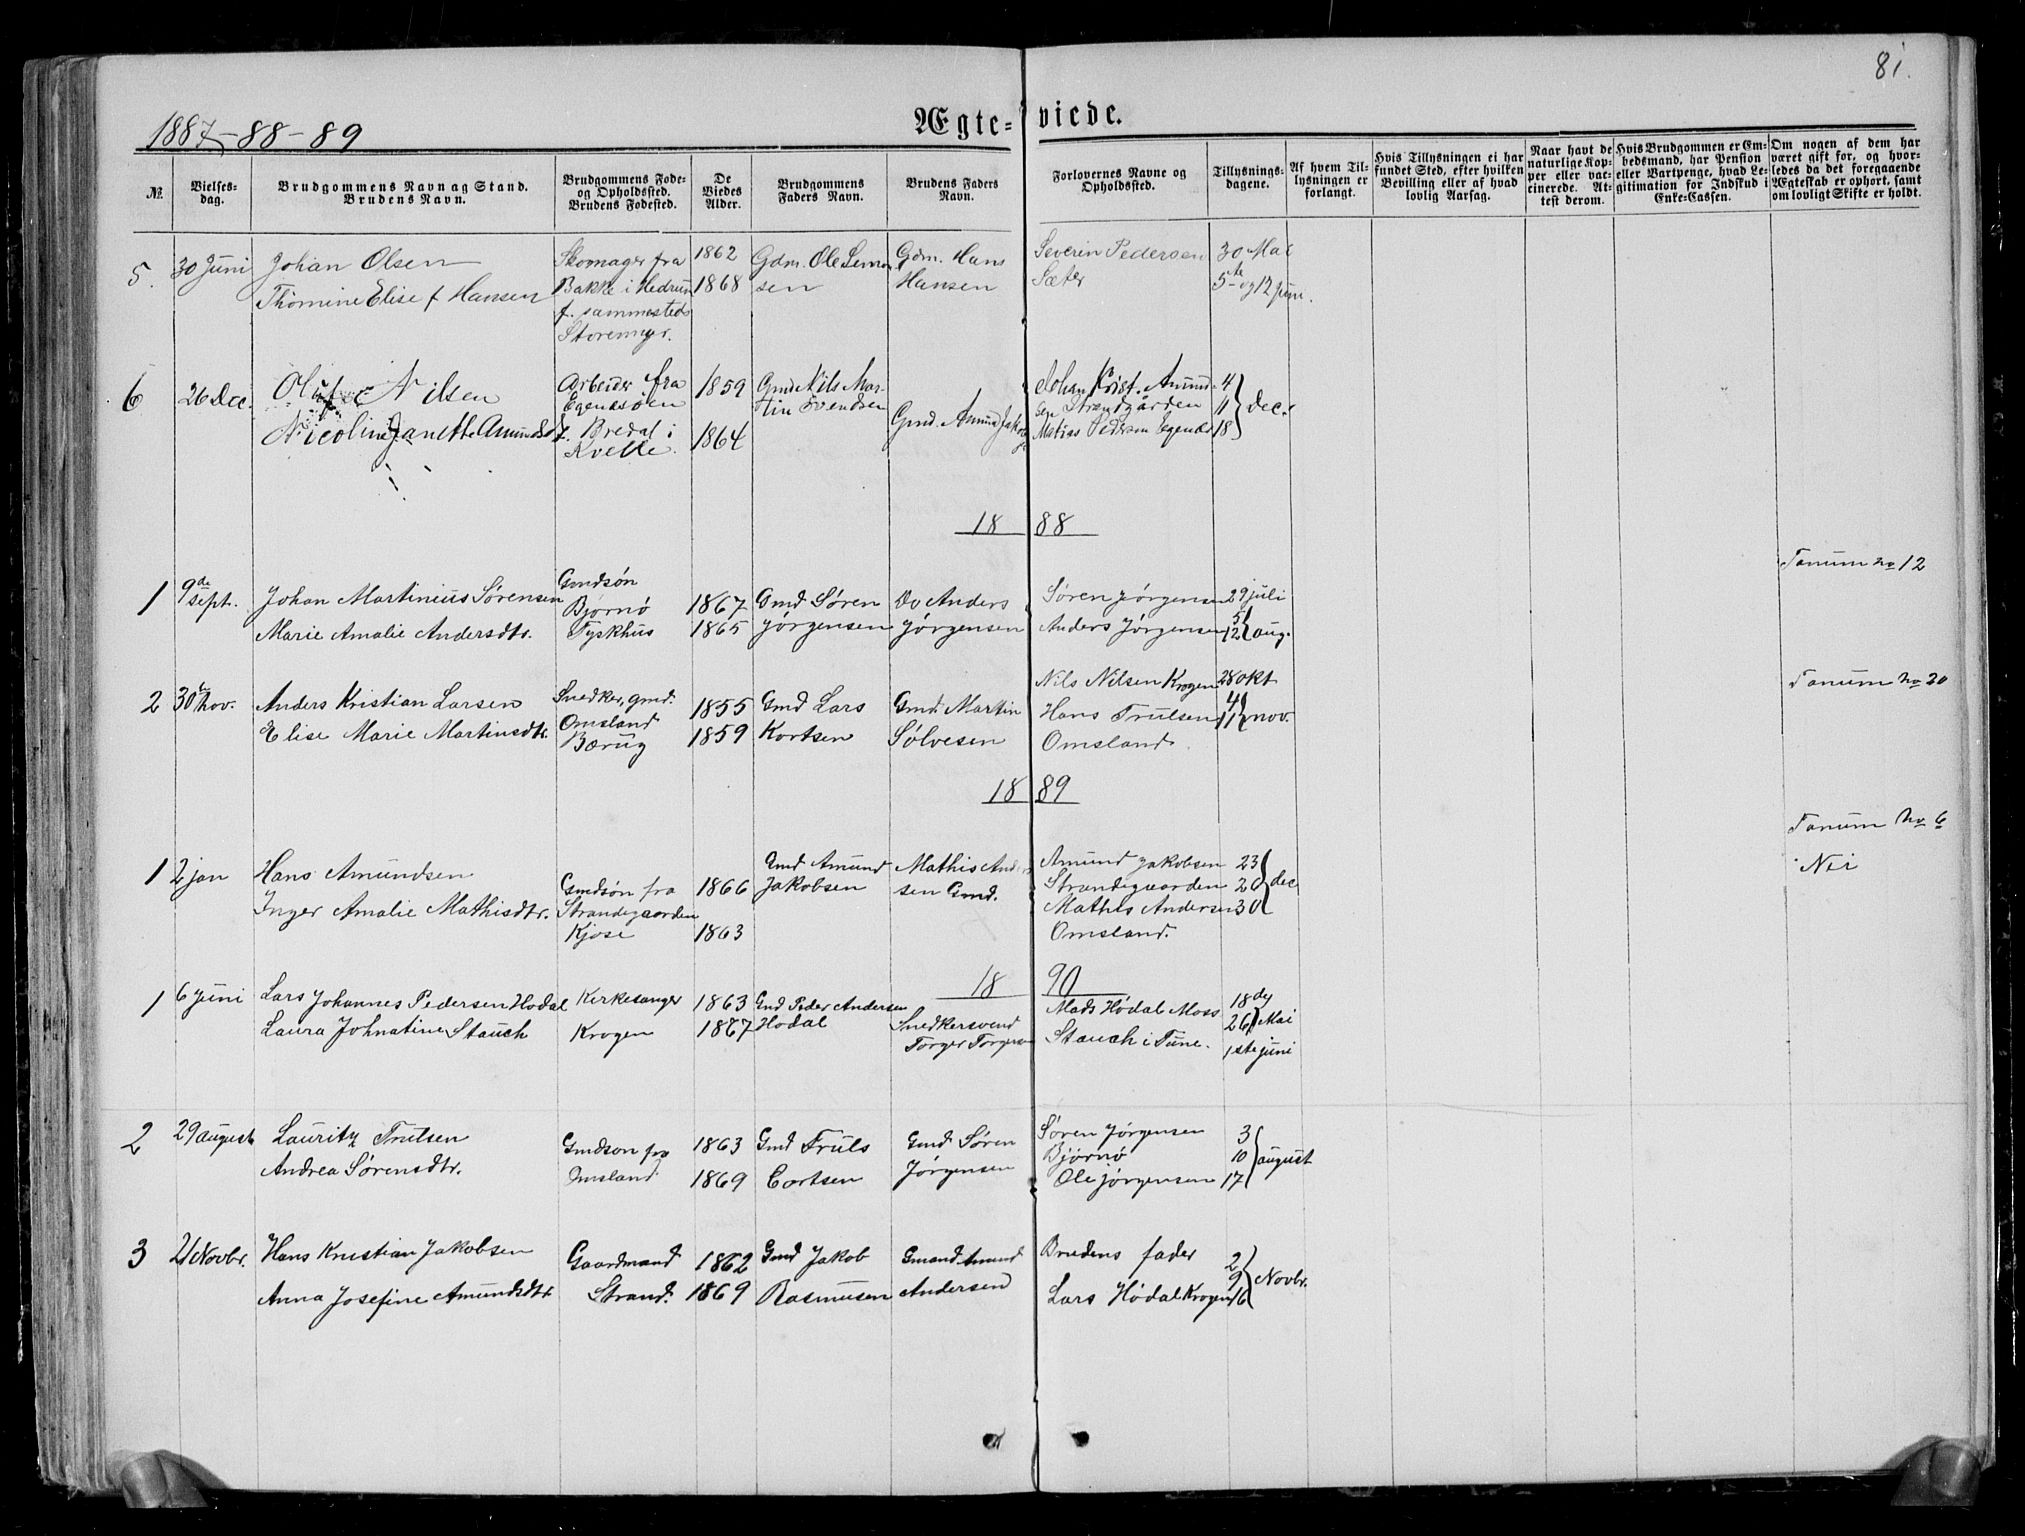 81.
1887-88-89
Ægte- viede.
№.
Vielses-
dag.
Brudgommens Navn og Stand.
Brudens Navn.
Brudgommens Fode-
og Opholdssted.
Brudens Fodested.
De
Viedes
Alder.
Brudgommens
Faders Navn.
Brudens Faders
Navn.
Forlovernes Navne og
Opholdssted.
Tillysnings-
dagene.
Af hvem Til-
lysningen er
forlangt.
Hvis Tillysningen ei har
fundet Sted, efter hvilken
Bevilling eller af hvad
lovlig Aarsag.
Naar havt de
naturlige Kop-
per eller vac-
cinerede. At-
test derom.
Hvis Brudgommen er Em-
bedsmand, har Pension
eller Vartpenge, hvad Le-
gitimation for Indskud i
Enke-Cassen.
Om nogen af dem har
været gift for, og hvor-
ledes da det foregaaende
Ægteskab er ophort, samt
om lovligt Skifte er holdt.
5. 30 Juni
Johan Olsen
Thomine Elise f Hansen
Skomager fra
Bakke i Hedrum
f. sammesteds
1862
1868
Gdm. Ole Simon
sen
Gdm. Hans
Hansen
Severin Pedersen
Sæter
30 Mai
5te og 12 Juni.
6 26 Dec.
Nilsen
Nicoline Janette Amunds
Arbeider fra
f. Bredal i
Kvelle.
1859
1864
Gmd Nils Mar-
tin Evendsen
Gmd. Amund Jakob
Johan Krist. Amund-
sen Strandgården
Matias Pedersen Egenæs
4
11
18
Dec.
18 88
1 9de sept.
Johan Martinius Sørensen
Marie Amalie Andersdtr.
Gmdsøn
Bjørnø
Tyskhus
1867
1865
Gmd Søren
Jørgensen
Do Anders
Jørgensen
Søren Jørgensen
Anders Jørgensen
29 juli
5
12 aug.
Tanum no 12
2 30 nov.
Anders Kristian Larsen
Elise Marie Martinsdtr
Snedker, gmd.
Omsland
Bærug
1855
1859
Gmd Lars
Kortsen
Gmd. Martin
Sølvesen
Nils Nilsen Krogen
Hans Trulsen
Omsland
28 okt
4
11 nov.
Tanum no 20
18 89
1 2 jan
Hans Amundsen
Inger Amalie Mathisdtr.
Gmdsøn fra
Strandegaarden
Kjose
1866
1863
Gmd Amund
Jakobsen
Mathis Ander
sen Gmd.
Amund Jakobsen
Strandegaarden
Mathis Andersen
Omsland.
23
26
30
dec
Tanum No 6
Nei
18 90
1 6 juni
Lars Johannes Pedersen Hodal
Laura Johnatine Stauch
Kirkesanger
Krogen
1863
1867
Gmd Peder Andersen
Hodal
Snedkersvend
Torger Torgersen
Mads Hødal Moss
Stauch i Tune.
18de
26 Mai
1ste juni
2 29 august
Lauritz Trulsen
Andrea Sørensdtr.
Gmdson fra
Omsland
1863
1869
Gmd Truls
Cortsen
Gmd. Søren
Jørgensen
Søren Jørgensen
Bjørnø
Ole jørgensen
3
10
17
august
3 21 Novbr.
Hans Kristian Jakobsen
Anna Josefine Amundsdtr
Gaardmand
Strand.
1862
1869
Gmd Jakob
Rasmusen
Gmand Amund
Andersen
Brudens fader
Lars Hødal Krogen
2
9
16
Novbr.